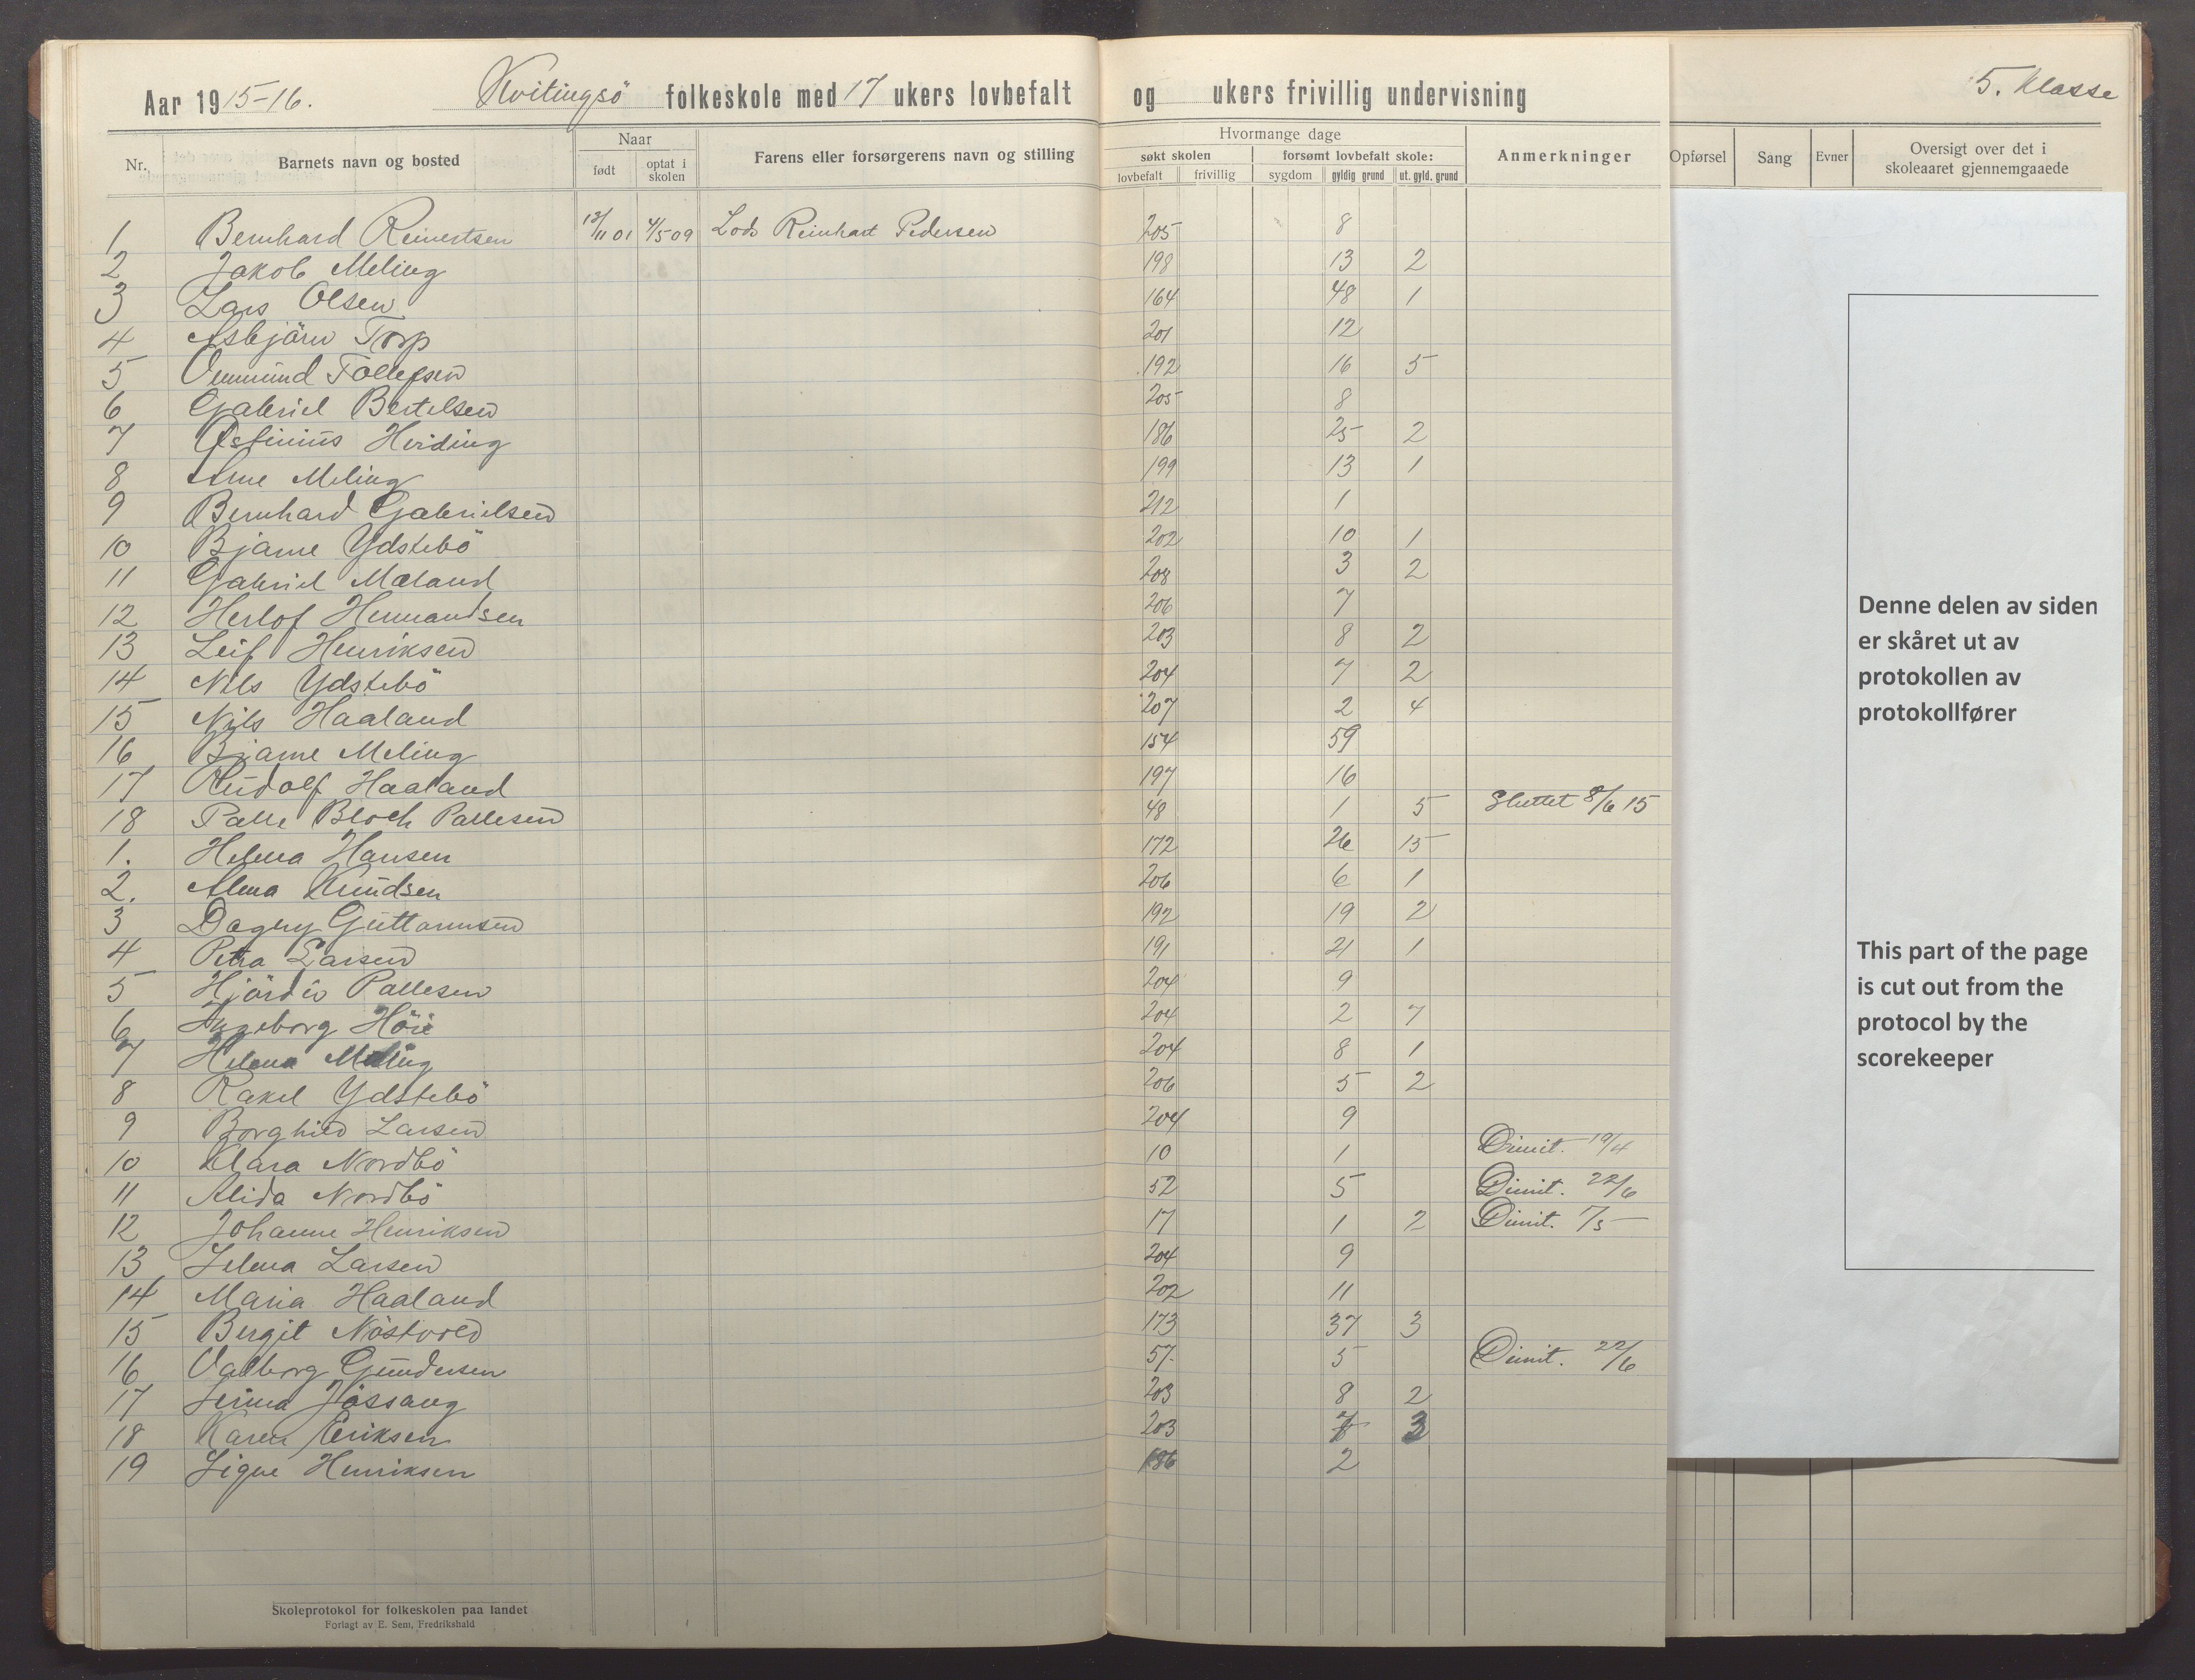 Aar 1915-16. Kvitingsö folkeskole med 17 ukers lovbefalt og ukers frivillig undervisning 5. Klasse
Nr. Barnets navn og bosted Naar født optat i skolen Farens eller forsørgerens navn og stilling Hvormange dage søkt skolen lovbefalt frivillig forsømt lovbefalt skole: sygdom gyldig grund ut. gyld. grund Anmerkninger Opførsel Sang Evner Oversigt over det i skoleaaret gjennemgaaede
1 Bernhard Reinertsen 13/11 01 4/5 09 Lods Reinhart Pedersen 205 8
2 Jakob Meling 198 13 2
3 Lars Olsen 164 48 1
4 Asbjörn Torp 201 12
5 Ommund Tollefsen 192 16 5
6 Gabriel Bertelsen 205 8
7 Heiding 186 25 2
8 Arne Meling 199 13 1
9 Bernhard Gabrielsen 212 1
10 Bjarne Ydstebö 202 10 1
11 Gabriel Mæland 208 3 2
12 Herlof Hermandsen 206 7
13 Leif Henriksen 203 8 2
14 Nils Ydstebö 204 7 2
15 Nils Haaland 207 2 4
16 Bjarne Meling 154 59
17 Rudolf Haaland 197 16
18 Palle Bloch Pallesen 48 1 5 Sluttet 8/6 15
1. Helena Hansen 172 26 15
2. Alma Knudsen 206 6 1
3 Dagny Guttormsen 192 19 2
4 Petra Larsen 191 21 1
5 Hjördis Pallesen 204 9
6 Ingeborg Höie 204 2 7
7 Helena Meling 204 8 1
8 Rakel Ydstebö 206 5 2
9 Borghild Larsen 204 9
10 Klara Nordbö 10 1 Dimit. 19/4
11 Alida Nordbö 52 5 Dimit. 22/6
12 Johanne Henriksen 17 1 2 Dimit. 7/5
13 Selma Larsen 204 9
14 Maria Haaland 202 11
15 Bergit Nöstvold 173 37 3
16 Valborg Gundersen 57. 5 Dimit. 22/6
17 Jössang 203 8 2
18 Karen Eriksen 203 7 3
19 Signe Henriksen 186 2
Skoleprotokol for folkeskolen paa landet
Forlagt av E. Sem, Fredrikshald
Denne delen av siden
er skåret ut av
protokollen av
protokollfører
This part of the page
is cut out from the
protocol by the
scorekeeper